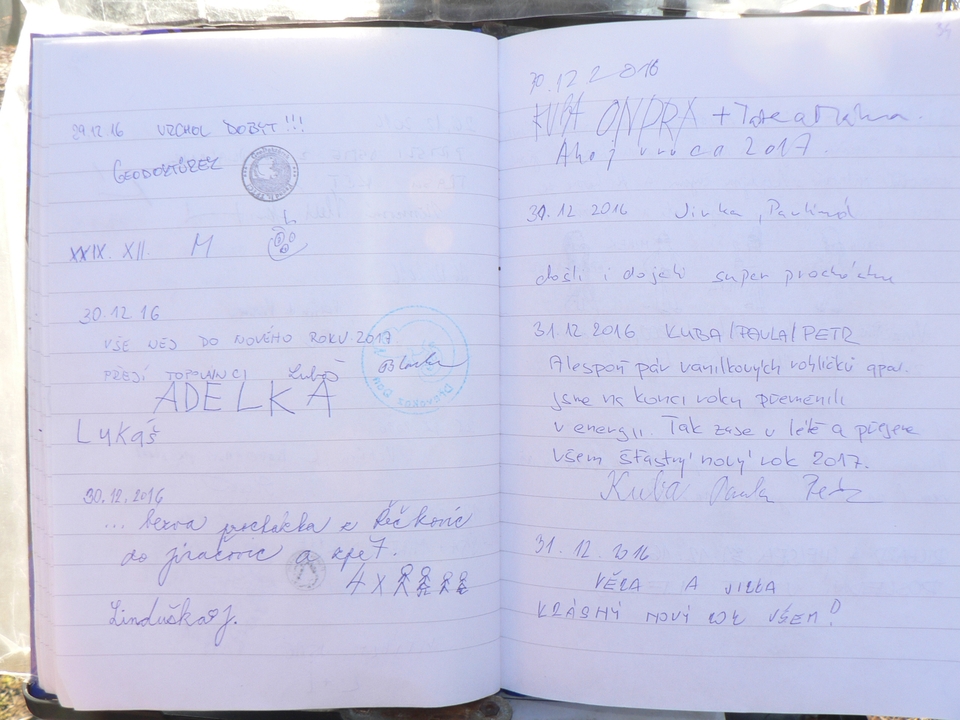 29.12.16 VRCHOL DOBYT!!!
GEODORTŮREK
XXIX. XII. M
30.12 16
VŠE NEJ DO NOVÉHO ROKU 2017
PŘEJÍ TOPOLÁNCI Luboš
ADELKA
Lukáš
30.12.2016
... bezva procházka z Řečkovic
do Jinačovic a zpět.
4x
Linduška J.
30.12 2016
KUBA ONDRA + Táta a Máma.
Ahoj v roce 2017.
31.12 2016 Jirka, Pavlína
došli i dojeli super procházka
31.12 2016 KUBA/PAVLA/PETR
Alespoň pár vanilkových rohlíčků apod.
jsme na konci roku přeměnili
v energii. Tak zase v létě a přejeme
všem šťastný nový rok 2017.
Kuba Pavla Petr
31.12.2016
VĚRA A JIRKA
KRÁSNÝ NOVÝ ROK VŠEM!